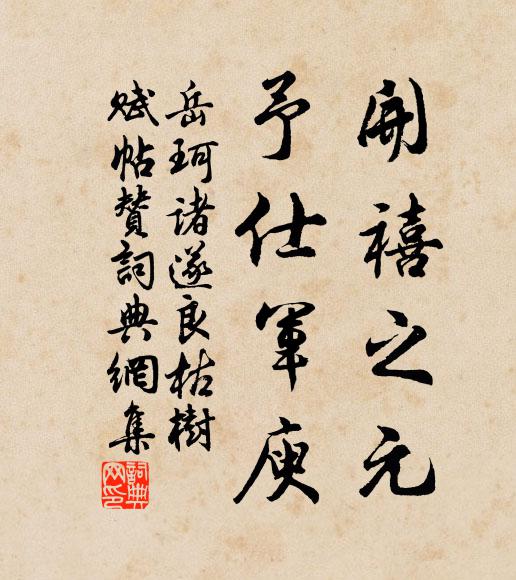 開禧之元
予仕軍庾
岳珂諸遂良枯樹
賦帖贊詞典網集
詞典網印